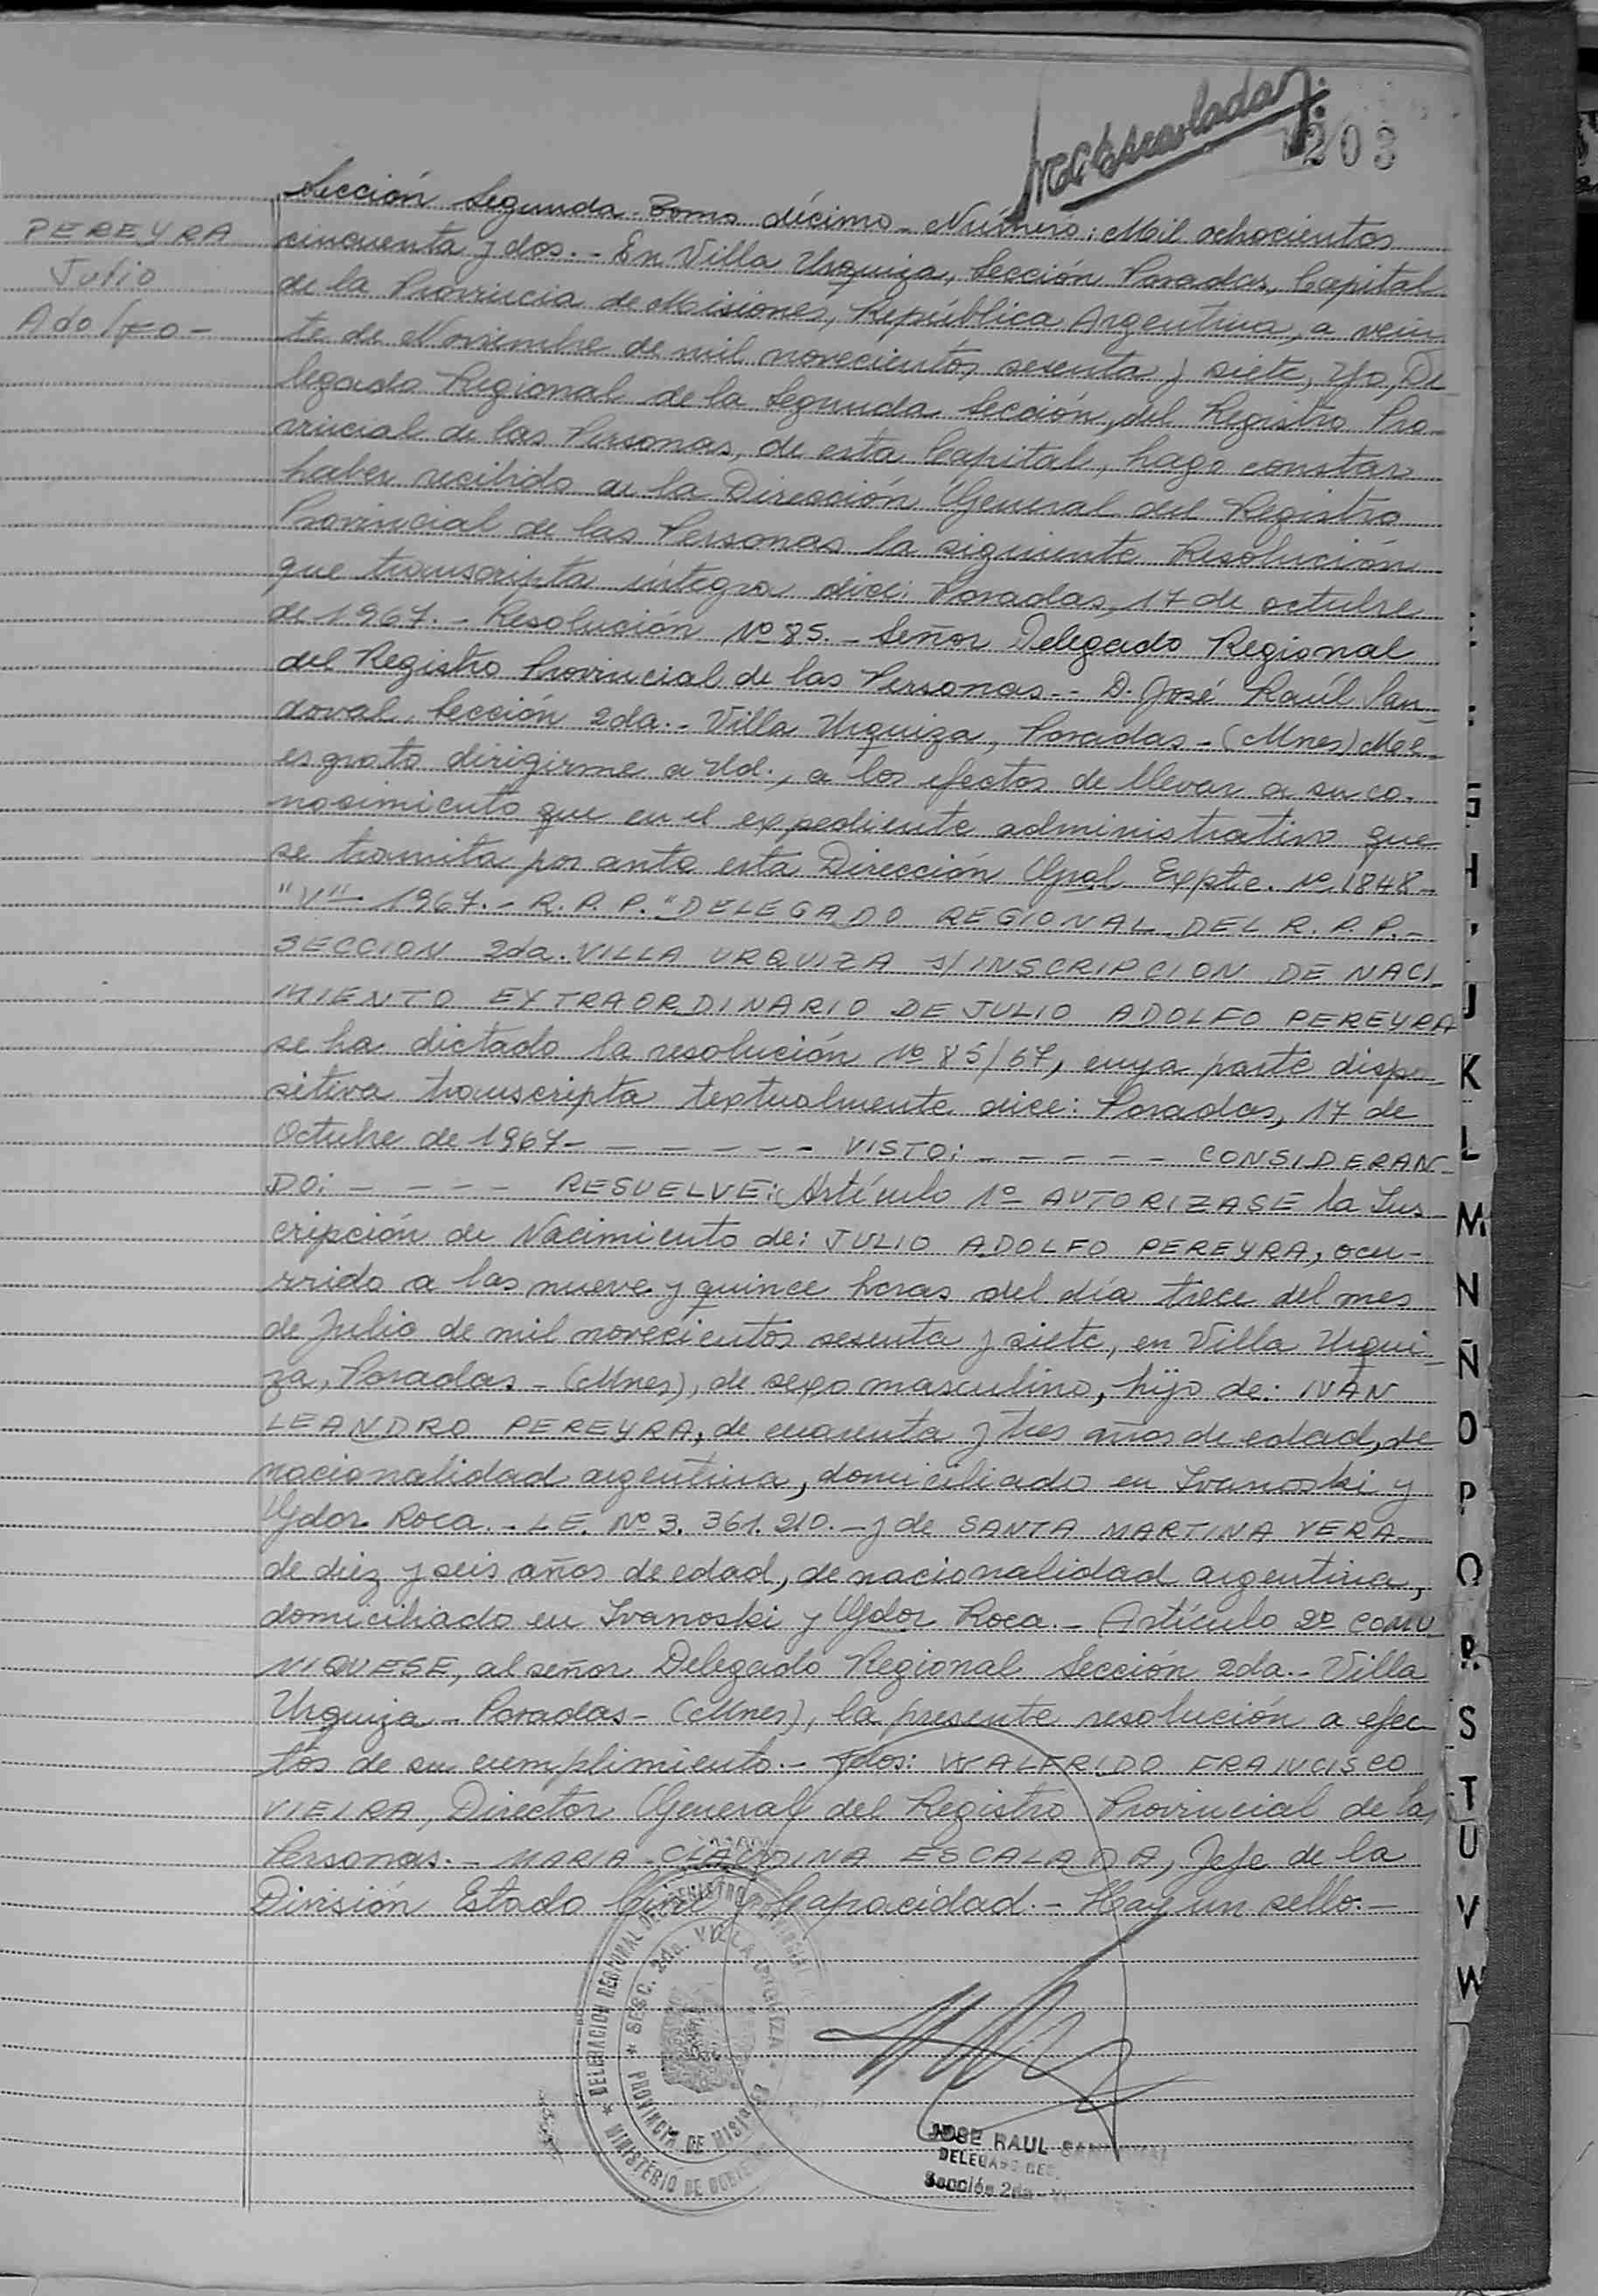 203
PEREYRA
Julio
Adolfo-
Sección Segunda. Tomo décimo - Número: Mil ochocientos
cincuenta y dos. - En Villa Urquiza, Sección Posadas, Capital
de la Provincia de Misiones, República Argentina, a vein-
te de Noviembre de mil novecientos sesenta y siete, Yo, De-
legado Regional de la Segunda Sección, del Registro Pro-
vincial de las Personas, de esta Capital, hago constar
haber recibido de la Dirección General del Registro
Provincial de las Personas la siguiente Resolución
que transcripta íntegra dice: Posadas, 17 de octubre
de 1967. - Resolución Nº 85. - Señor Delegado Regional
del Registro Provincial de las Personas. - D. José Raúl San-
doval. Sección 2da. - Villa Urquiza, Posadas - (Mnes) Me
es grato dirigirme a Ud., a los efectos de llevar a su co-
nocimiento que en el expediente administrativo que
se tramita por ante esta Dirección Gral Expte. Nº 1848-
"V" 1967. - R. P. P. "DELEGADO REGIONAL DEL R. P. P. -
SECCION 2da. VILLA URQUIZA S/INSCRIPCION DE NACI-
MIENTO EXTRAORDINARIO DE JULIO ADOLFO PEREYRA
se ha dictado la resolución Nº 85/67, cuya parte dispo-
sitiva transcripta textualmente dice: Posadas, 17 de
Octubre de 1967- - - - - - - VISTO: - - - - - CONSIDERAN-
DO: - - - - RESUELVE: Artículo 1º AUTORIZASE la Ins-
cripción de Nacimiento de: JULIO ADOLFO PEREYRA, ocu-
rrido a las nueve y quince horas del día trece del mes
de Julio de mil novecientos sesenta y siete, en Villa Urqui-
za, Posadas - (Mnes), de sexo masculino, hijo de: IVAN
LEANDRO PEREYRA, de cuarenta y tres años de edad, de
nacionalidad argentina, domiciliado en Ivanoski y
Gdor Roca. - L.E. Nº 3. 361. 210. - y de SANTA MARTINA VERA
de diez y seis años de edad, de nacionalidad argentina,
domiciliado en Ivanoski y Gdor Roca. - Artículo 2º COMU-
NIQUESE, al señor Delegado Regional Sección 2da. - Villa
Urquiza - Posadas - (Mnes), la presente resolución a efec-
tos de su cumplimiento. - Fdos: WALFRIDO FRANCISCO
VIEIRA, Director General del Registro Provincial de las
Personas. - MARIA CLAUDINA ESCALADA, Jefe de la
División Estado Civil y Capacidad. - Hay un sello. -
DELEGACION REGIONAL DEL REGISTRO PROVINCIAL
SECC. 2da. VILLA URQUIZA
PROVINCIA DE MISIONES
MINISTERIO DE GOBIERNO
JOSE RAUL SANDOVAL
DELEGADO REG.
Sección 2da -
G
H
J
K
L
M
N
Ñ
O
P
Q
R
S
T
U
V
W